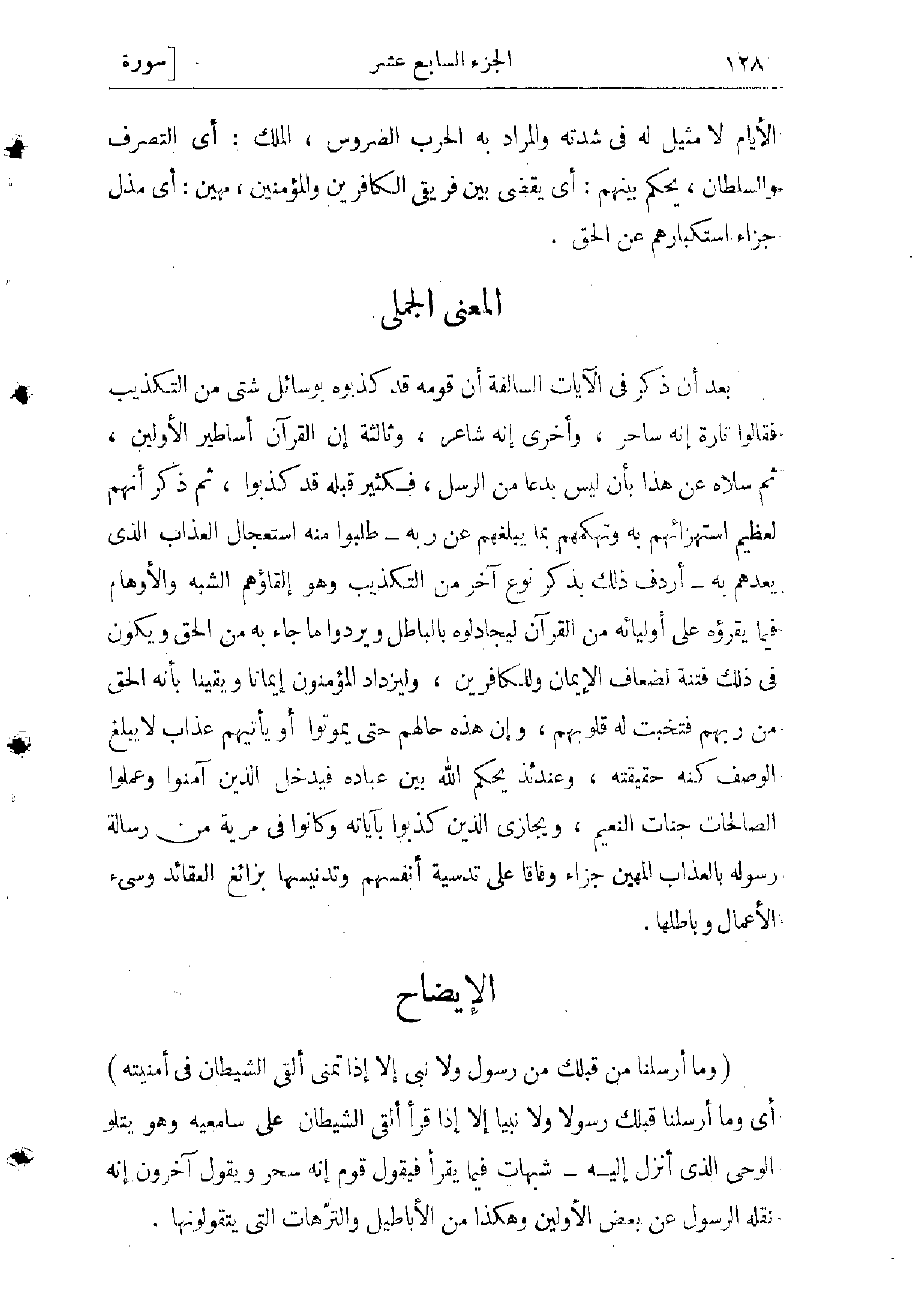 ١٢٨ الجزء السابع عشر [سورة
الأيام لا مثيل له فى شدته والمراد به الحرب الضروس ، الملك : أى التصرف
والسلطان ، يحكم بينهم : أى يقضى بين فريقى الكافرين والمؤمنين ، مهين : أى مذل
جزاء استكبارهم عن الحق .
المعنى الجملى
بعد أن ذكر فى الآيات السالفة أن قومه قد كذبوه بوسائل شتى من التكذيب
فقالوا تارة إنه ساحر ، وأخرى إنه شاعر ، وثالثة إن القرآن أساطير الأولين ،
ثم سلاه عن هذا بأن ليس بدعا من الرسل ، فكثير قبله قد كذبوا ، ثم ذكر أنهم
لعظيم استهزائهم به وتهكمهم بما يبلغهم عن ربه – طلبوا منه استعجال العذاب الذى
يعدهم به – أردف ذلك بذكر نوع آخر من التكذيب وهو إلقاؤهم الشبه والأوهام
فيما يقرؤه على أوليائه من القرآن ليجادلوه بالباطل ويردوا ما جاء به من الحق ويكون
فى ذلك فتنة لضعاف الإيمان وللكافرين ، وليزداد المؤمنون إيمانا ويقينا بأنه الحق
من ربهم فتخبت له قلوبهم ، وإن هذه حالهم حتى يموتوا أو يأتيهم عذاب لا يبلغ
الوصف كنه حقيقته ، وعندئذ يحكم الله بين عباده فيدخل الذين آمنوا وعملوا
الصالحات جنات النعيم ، ويجازى الذين كذبوا بآياته وكانوا فى مرية من رسالة
رسوله بالعذاب المهين جزاء وفاقا على تدسية أنفسهم وتدنيسها بزائغ العقائد وسىء
الأعمال وباطلها .
الإيضاح
( وما أرسلنا من قبلك من رسول ولا نبى إلا إذا تمنى ألقى الشيطان فى أمنيته )
أى وما أرسلنا قبلك رسولا ولا نبيا إلا إذا قرأ ألقى الشيطان على سامعيه وهو يتلو
الوحى الذى أنزل إليه – شبهات فيما يقرأ فيقول قوم إنه سحر ويقول آخرون إنه
نقله الرسول عن بعض الأولين وهكذا من الأباطيل والترّهات التى يتقولونها .